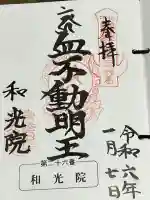 奉拝
血不動明王
和光院
令和六年
一月七日
第二十六番
和光院